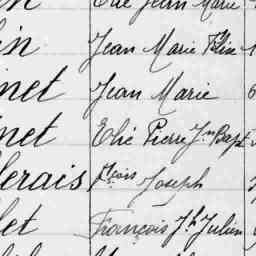 Elie Jean Marie
in Jean Marie
net Jean Marie
net Elié Pierre Jn Bapt
lerais Fçois Joseph
let François Jh Julien